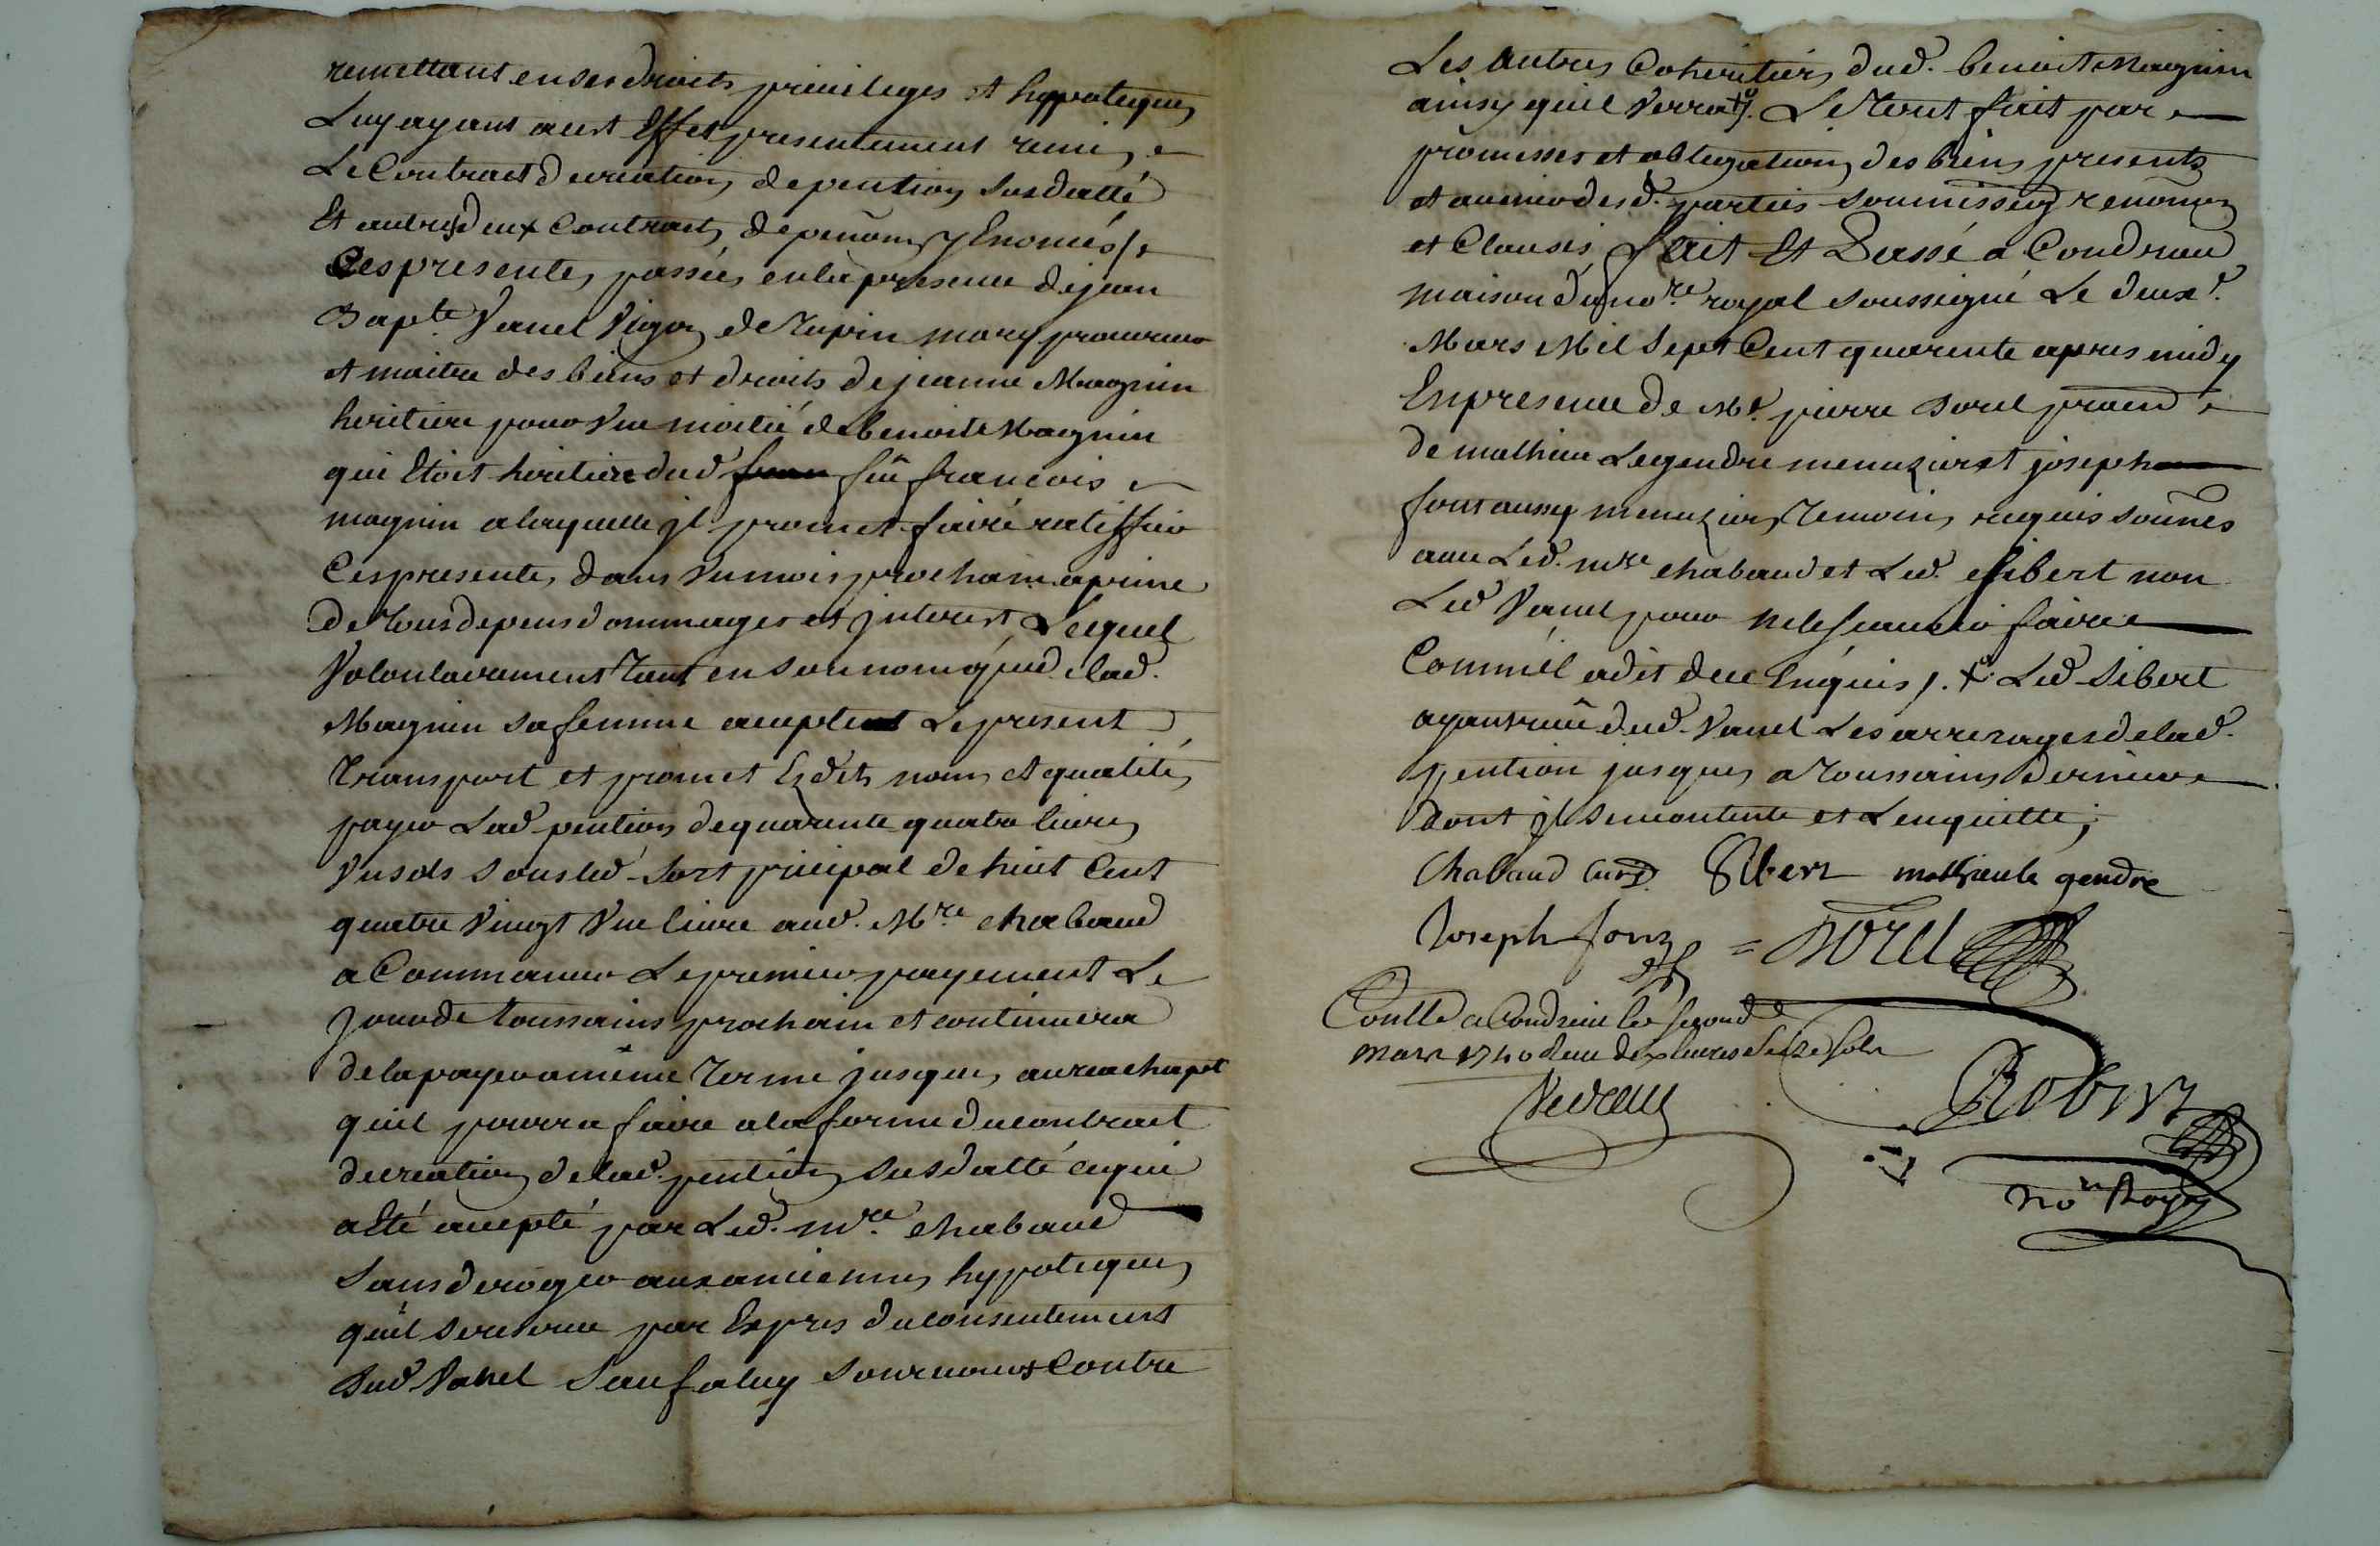 remettant en ses droits privileges et hypoteques
Luy ayant a cet Effet presentement remis
Le Contract de creation de pention susdatté
Et autres deux Contracts de penõns y Enoncés /.
Ces presentes passées en la presence de jean
Bapte. Vanel Vigon de Tupin mary procureur
et maitre des biens et droits de jeanne Magnin
heritiere pour Vne moitié de benoite Magnin
qui Etoit heritiere dud fûe francois
magnin a laquelle jl promet faire ratiffier
Ces presentes dans Vn mois prochain a peine
de Tous depens dommages et jnterest Lequel
Volontairement Tant en son nom que de lad.
Magnin sa femme accepte Le present
Transport et promet Esdits noms et qualités
payer Lad pention de quarente quatre livres
Vn sols sous led. sort principal de huit Cent
quatre Vingt Vne livre aud. Mre. Chabaud
a Commancer Le premier payement Le
Jour de Toussains prochain et continuera
de la payer a même Terme jusques au reachapt
quil pourra faire a la forme du contract
de creation de lad. pention susdatté ce qui
a Eté accepté par Led. mre. Chabaud
Sans deroger aux anciennes hypoteques
quil se reserve par Expres du consentement
Dud Vanel Sauf a luy son recours Contre
Les Autres Coheritiers dud. benoit Magnin
ainsy quil Verra. Le Tout fait par
promesses et obligations des biens presents
et avenir desd. parties soumissions renonõns
et Clauses fait Et Passé a Condrieu
maison du nore. royal soussigné Le deuxe.
Mars Mil Sept Cent quarente apres midy
En presence de Me. pierre Borel
de mathieu Legendre menuzier et joseph
font aussy menuzier Temoins requis soussnés
avec Led. mre Chabaud et Led. Sibert non
Led Vanel pour ne le scavoir faire
Comme il a dit de ce Enquis /. + Led Sibert
ayant receu dud. Vanel Les arrerages de lad.
pention jusques a Toussains derniere
dont jl se contente et Len quitte ;
Chabaud curé Sibert mathieu le gendre
Joseph fonz = Borel
Conllé a Condrieu le second
mars 1740 Receu dix livres seize sols
Robin
nore Royal